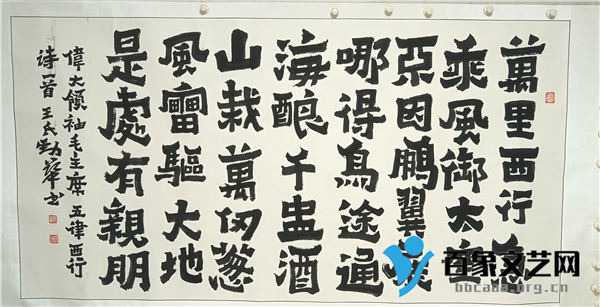 萬里西行急
乘風御太空
不因鵬翼展
哪得鳥途通
海酿千盅酒
山栽萬仞葱
風雷驅大地
是處有親朋
偉大領袖毛主席五律西行
诗一首 王氏 華书
百象文艺网